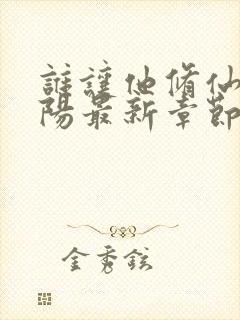 誰讓他脩仙
陽最新章節
金秀鉉